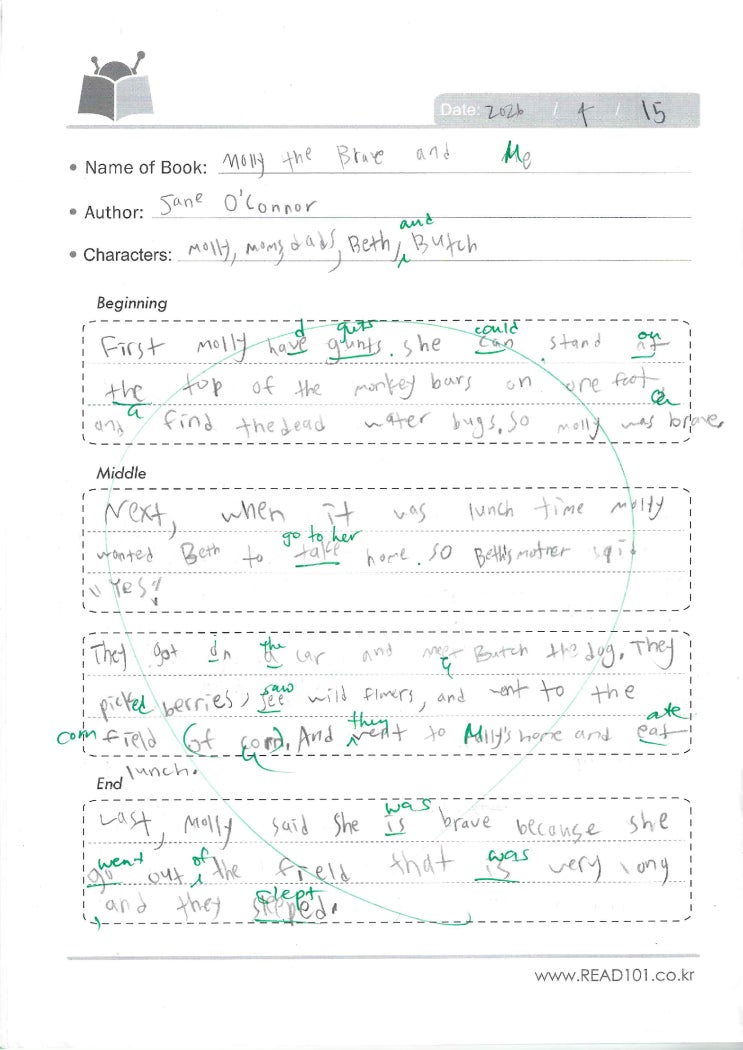 Date: 2026 / 4 / 15
• Name of Book: Molly the Brave and Me
• Author: Jane O'Connor
and
• Characters: Molly, moms, dads, Beth, Butch
Beginning
d guts could on
First Molly have gunts. she can stand at
the top of the monkey bars on one foot
a
and find the dead water bugs. So molly was brave.
Middle
Next, when it was lunch time molly
go to her
wanted Beth to take home. so Beth's mother said
"Yes!
the
They got in a car and meet Butch the dog. They
saw
picked berries, see wild flowers, and went to the
they ate
corn field of corn. And went to Molly's home and eat
lunch.
End
was
Last, Molly said she is brave because she
went of was
go out the field that is very long
slept
and they sleeped.
www.READ101.co.kr